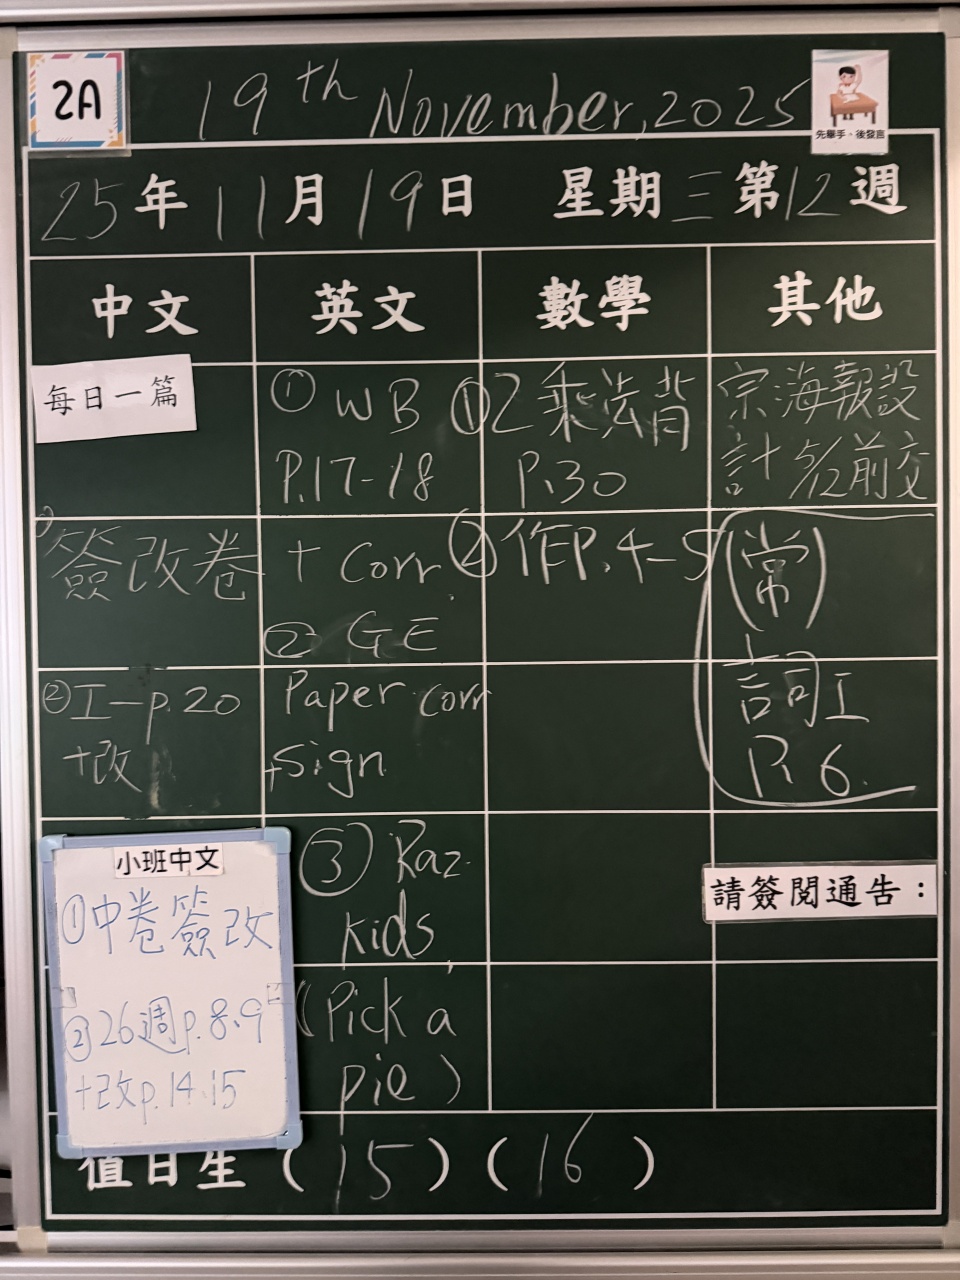 2A
19th November, 2025
先舉手，後發言
25年11月19日 星期三 第12週
中文
英文
數學
其他
每日一篇
①簽改卷
②工一p.20
+改
小班中文
①中卷簽改
②26週p.8、9
+改p.14、15
① WB
P.17-18
+ Corr.
② GE
Paper corr
+sign
③ Raz-
kids
(Pick a
pie)
①乙乘法背
P.30
②作P.4-5
宗海報設
計 5/12前交
(常)
詞工
P.6.
請簽閱通告：
值日生 (15) (16)